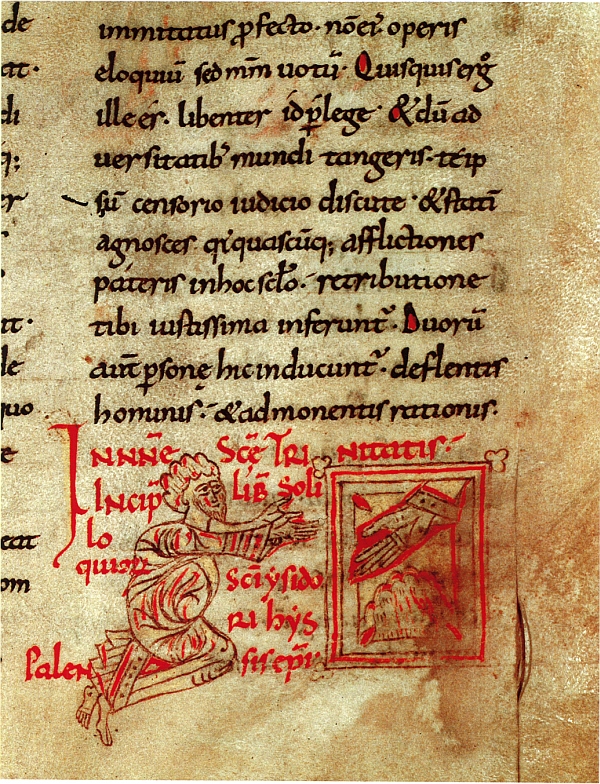 de
at·
di
q;
er
tt·
le
quo
e
eat
om
immitatus p̱fecto· nōeī operis
eloquiū sed mm̄ uotū· Quisquis ergo
ille eī· libenter id p̱lege· & dū ad
uersitatib; mundi tangeris· te ip
sū censorio iudicio discute· & statī
agnosces q quascūq; afflictiones
pateris in hoc sclo· retributione
tibi iustissima inferunt̄· Duorū
aut̄ p̱sonę hic inducunt̄· deflentis
hominis· & admonentis rationis·
INNN̄E SC̄E TRINITATIS·
INCIP̄ LIB̄ SOLI
LO
QUIOR̄
SCĪ YSIDO
RI HYS
PALEN SIS EPĪ